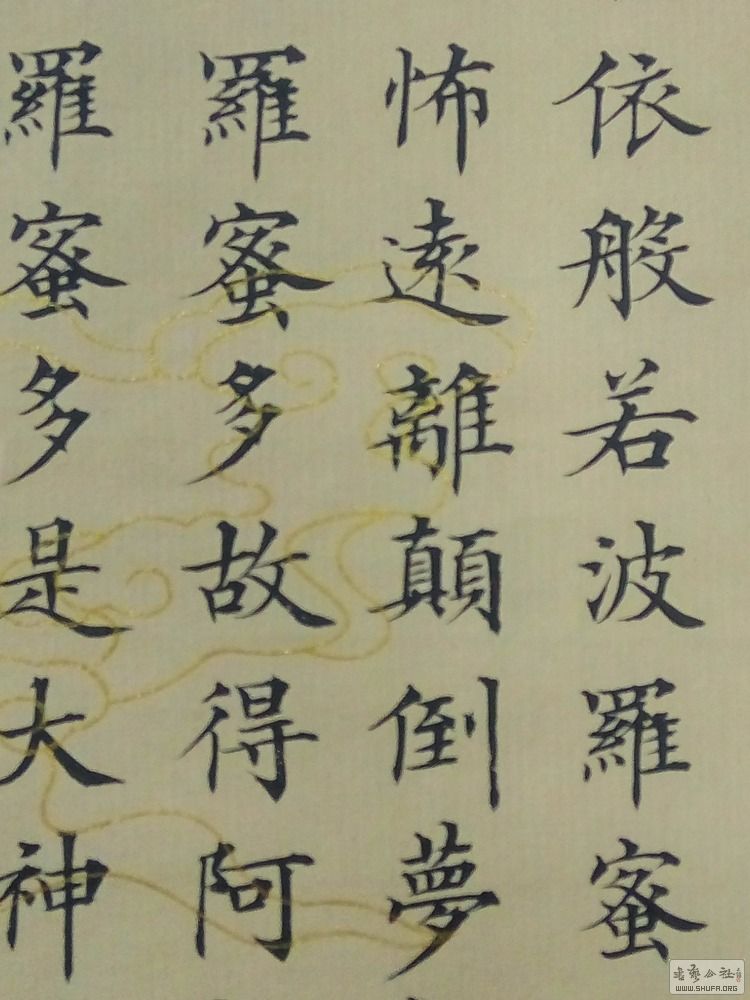 依般若波羅蜜
怖遠離顛倒夢
羅蜜多故得阿
羅蜜多是大神
WWW.SHUFA.ORG